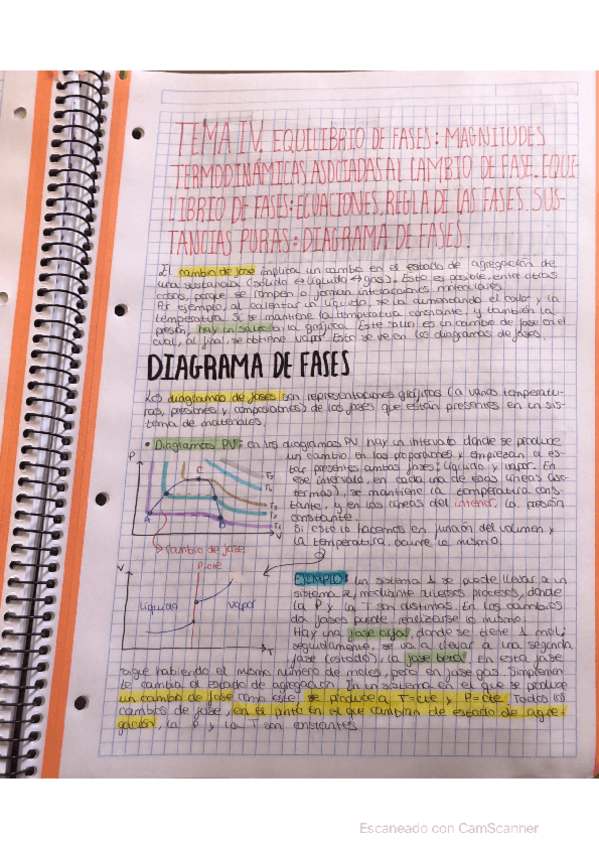 TEMA IV. EQUILIBRIO DE FASES: MAGNITUDES
TERMODINÁMICAS ASOCIADAS AL CAMBIO DE FASE. EQUI-
LIBRIO DE FASES: ECUACIONES. REGLA DE LAS FASES. SUS-
TANCIAS PURAS: DIAGRAMA DE FASES.
El cambio de fase implica un cambio en el estado de agregación de
una sustancia (sólido ↔ líquido ↔ gas). Esto es posible, entre otras
cosas, porque se rompen o forman interacciones moleculares.
Por ejemplo, al calentar un líquido, se va aumentando el calor y la
temperatura. Si se mantiene la temperatura constante, y también la
presión, hay un salto en la gráfica. Este salto es un cambio de fase en el
cual, al final, se obtiene vapor. Esto se ve en los diagramas de fases.
DIAGRAMA DE FASES
Los diagramas de fases son representaciones gráficas (a varias temperatu-
ras, presiones y composiciones) de las fases que están presentes en un sis-
tema de materiales.
• Diagramas PV: en los diagramas PV hay un intervalo donde se produce
un cambio en las proporciones y empiezan a es-
tar presentes ambas fases: líquido y vapor. En
ese intervalo, en cada una de esas líneas (iso-
termas), se mantiene la temperatura cons-
tante, y en las líneas del interior, la presión
constante.
Si esto lo hacemos en función del volumen y
la temperatura, ocurre lo mismo.
P
C
A
B
T1
V
cambio de fase
V
P=cte
líquido
vapor
T
EJEMPLO: un sistema 1 se puede llevar a un
sistema 2, mediante diversos procesos, donde
la P y la T son distintas. En los cambios
de fases puede realizarse lo mismo.
Hay una fase alfa, donde se tiene 1 mol;
seguidamente, se va a llevar a una segunda
fase (estado), la fase beta. En esta fase
sigue habiendo el mismo número de moles, pero en fase gas. Simplemen-
te cambia el estado de agregación. En un sistema en el que se produce
un cambio de fase como este, se produce a T=cte y P=cte. Todos los
cambios de fase, en el punto en el que cambian de estado de agre-
gación, la P y la T son constantes.
Escaneado con CamScanner